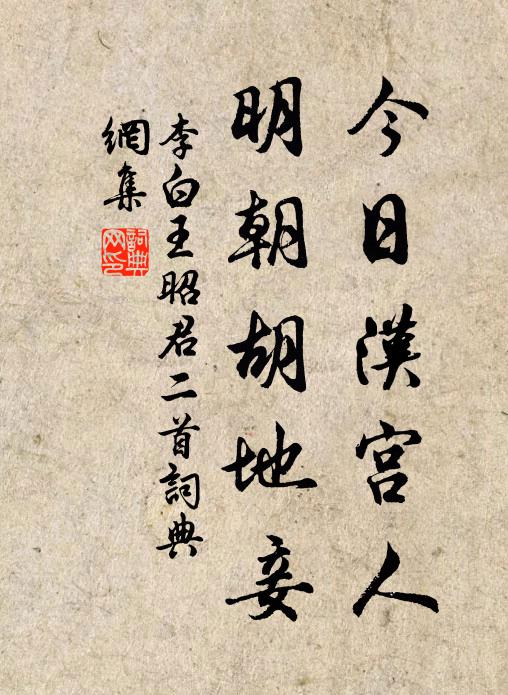 今日漢宮人
明朝胡地妾
李白王昭君二首詞典
網集
詞典
网印